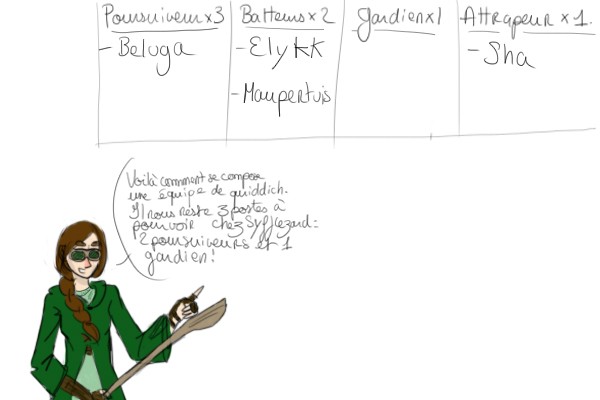 Poursuiveur x3
- Beluga
Batteurs x2
- Elykk
- Maupertuis
Gardien x1
Attrapeur x 1.
- Sha
Voilà comment se compose
une équipe de quiddich.
Il nous reste 3 postes à
pourvoir chez Syfflezard :
2 poursuiveurs et 1
gardien !